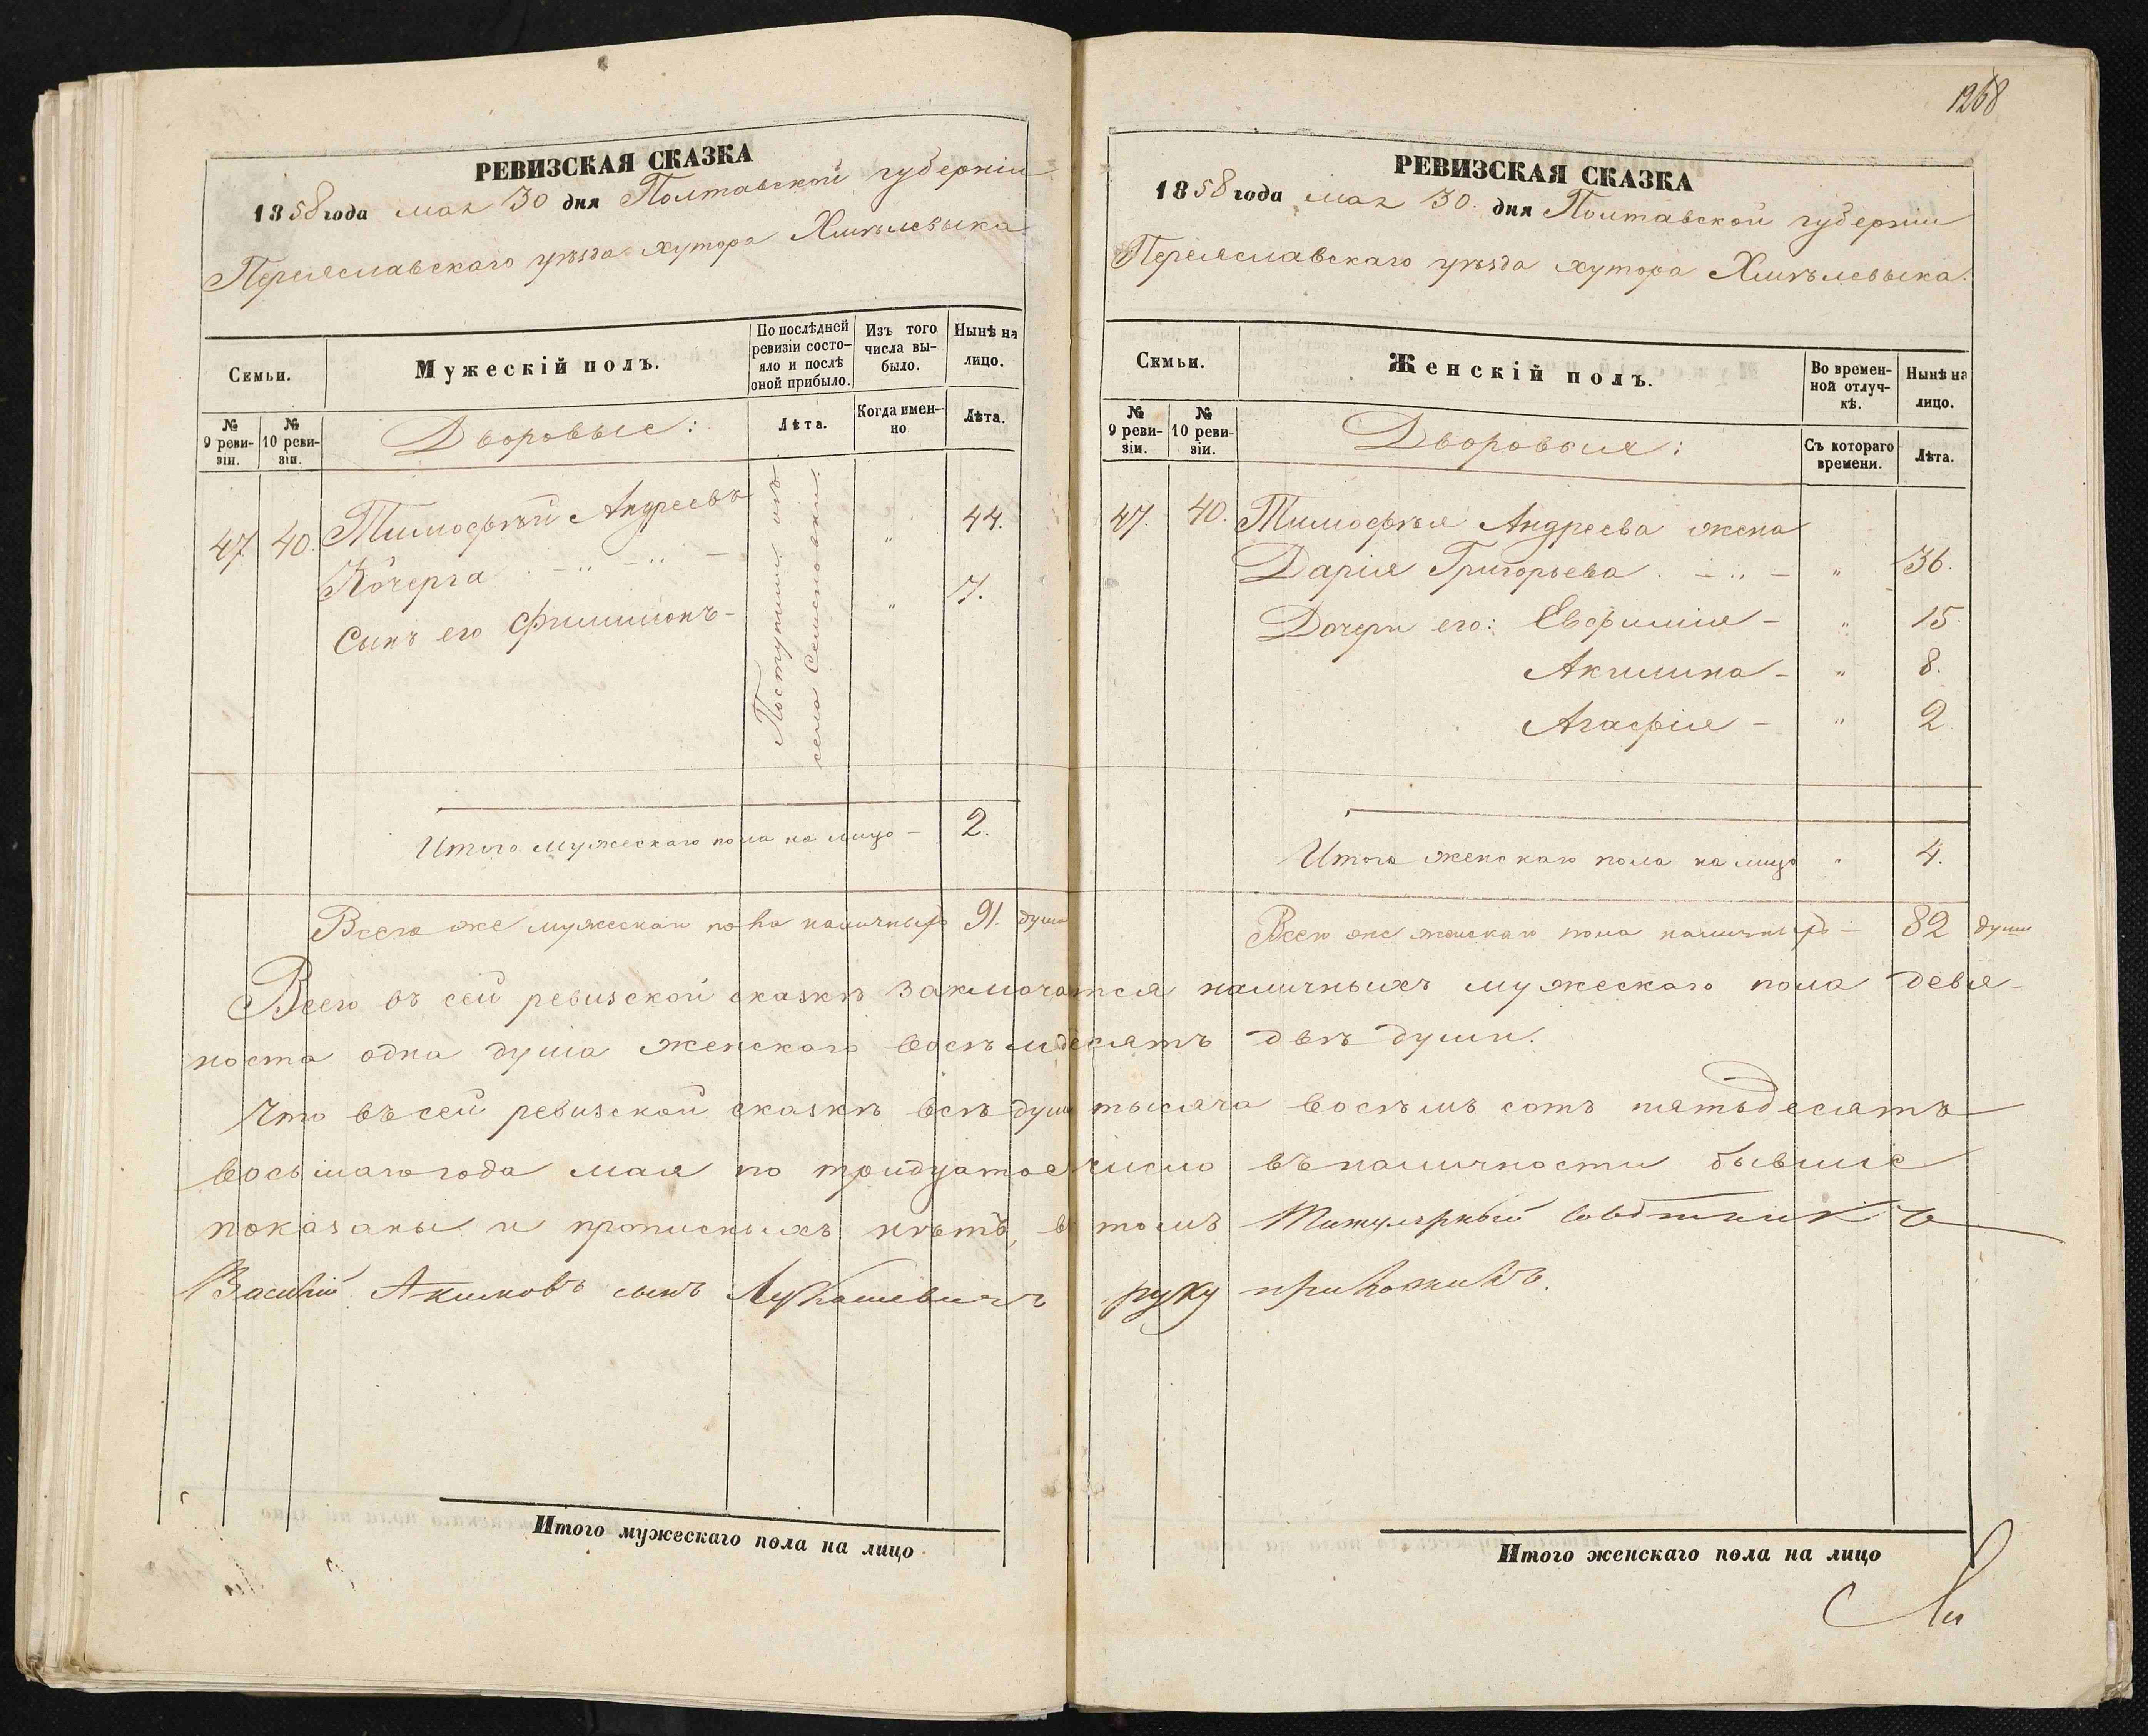 1268
РЕВИЗСКАЯ СКАЗКА
1858 года мая 30 дня Полтавской губерніи
Переяславскаго уѣзда хутора
Семьи.
Мужескій полъ.
По послѣдней ревизіи состояло и послѣ оной прибыло.
Изъ того числа выбыло.
Нынѣ на лицо.
№ 9 ревизіи.
№ 10 ревизіи.
Дворовые:
Лѣта.
Когда именно
Лѣта.
47 40. Тимофѣй Андреевъ 44.
Кочерга - " - " -
Сынъ его Филимонъ - " 7.
Поступили изъ
села Семеновки
Итого мужескаго пола на лицо - 2.
Всего же мужескаго пола наличныхъ 91. душа
РЕВИЗСКАЯ СКАЗКА
1858 года мая 30. дня Полтавской губерніи
Переяславскаго уѣзда хутора
Семьи.
Женскій полъ.
Во временной отлучкѣ.
Нынѣ на лицо.
№ 9 ревизіи.
№ 10 ревизіи.
Дворовыя:
Съ котораго времени.
Лѣта.
47. 40. Тимофѣя Андреева жена
Дарія Григорьева. - " - " 36.
Дочери его: Евфимія - " 15
Акилина - " 8.
Агафія - " 2
Итого женскаго пола на лицо " 4.
Всего же женскаго пола наличныхъ - 82 души
Всего въ сей ревизской сказкѣ заключается наличныхъ мужескаго пола девя-
носта одна душа женскаго восѣмдесятъ двѣ души.
Что въ сей ревизской сказкѣ всѣ души тысяча восѣмъ сотъ пятьдесятъ
восьмаго года мая по тридцатое число въ наличности бывшіе
показаны и прописныхъ нѣтъ, в томъ Титулярный Совѣтникъ
Василій Акимовъ сынъ Лукашевичъ руку приложилъ.
Итого мужескаго пола на лицо
Итого женскаго пола на лицо